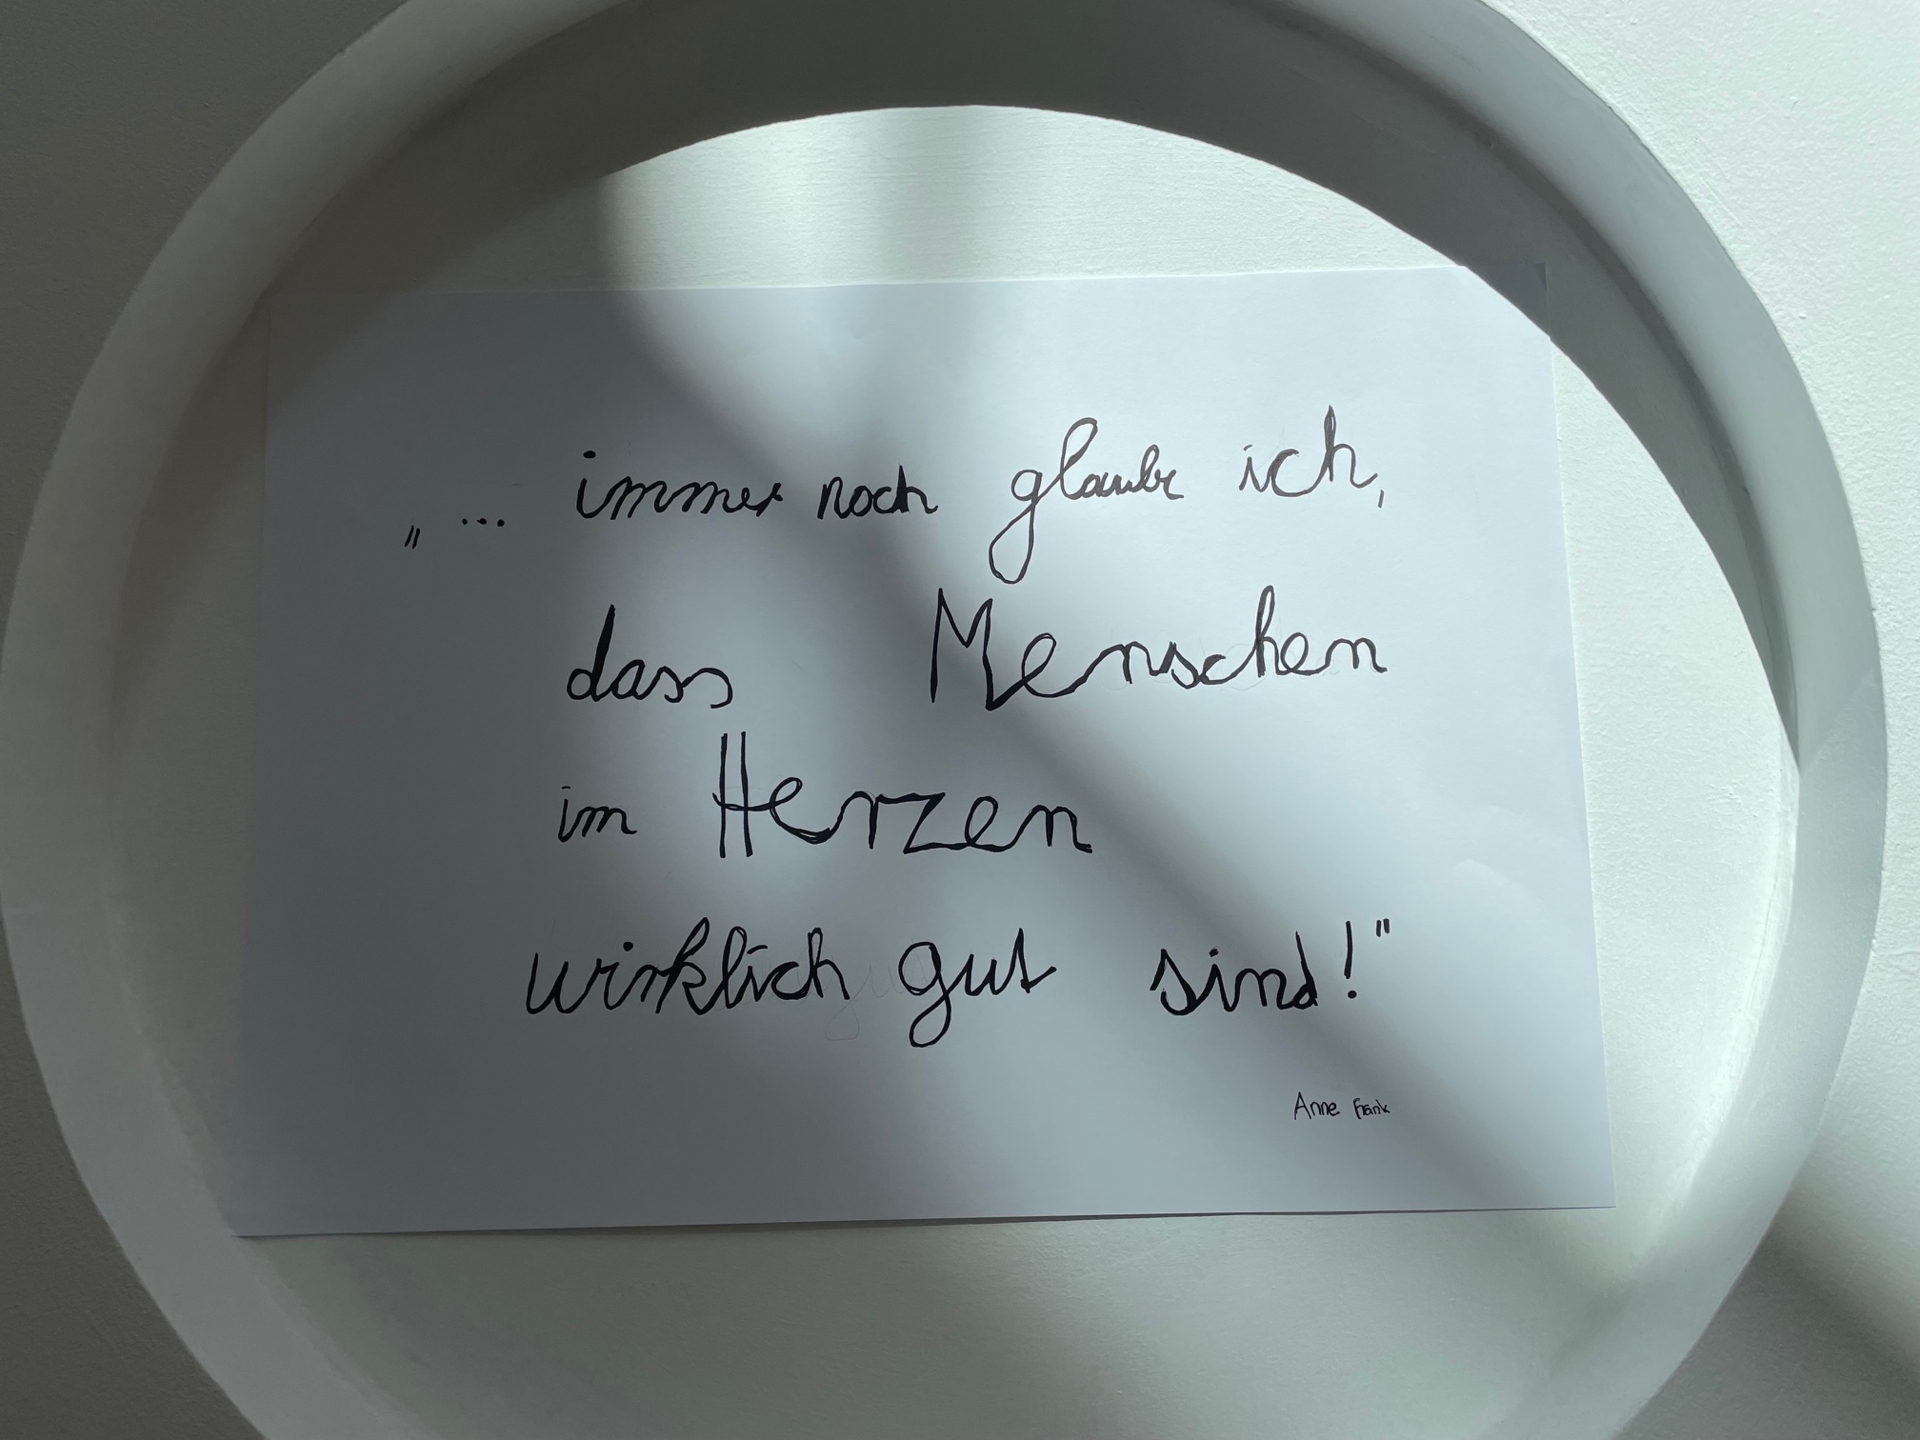 „... immer noch glaube ich,
dass Menschen
im Herzen
wirklich gut sind!"
Anne Frank